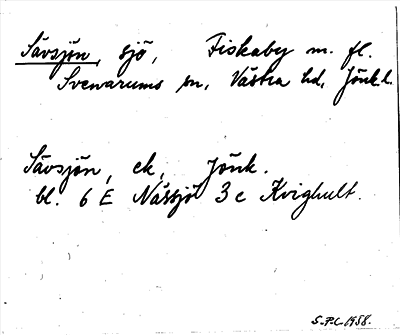 Sävsjön, sjö, Fiskaby m. fl.
Svenarums sn, Västra hd, Jönk.l.
Sävsjön, ek, Jönk.
bl. 6 E Nässjö 3 c Kvighult.
S.P.C. 1958.